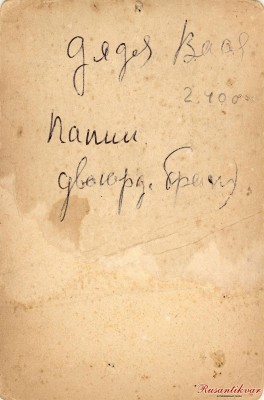 дядя Вася
2.400
Папин
двоюрд. брат
Rusantikvar